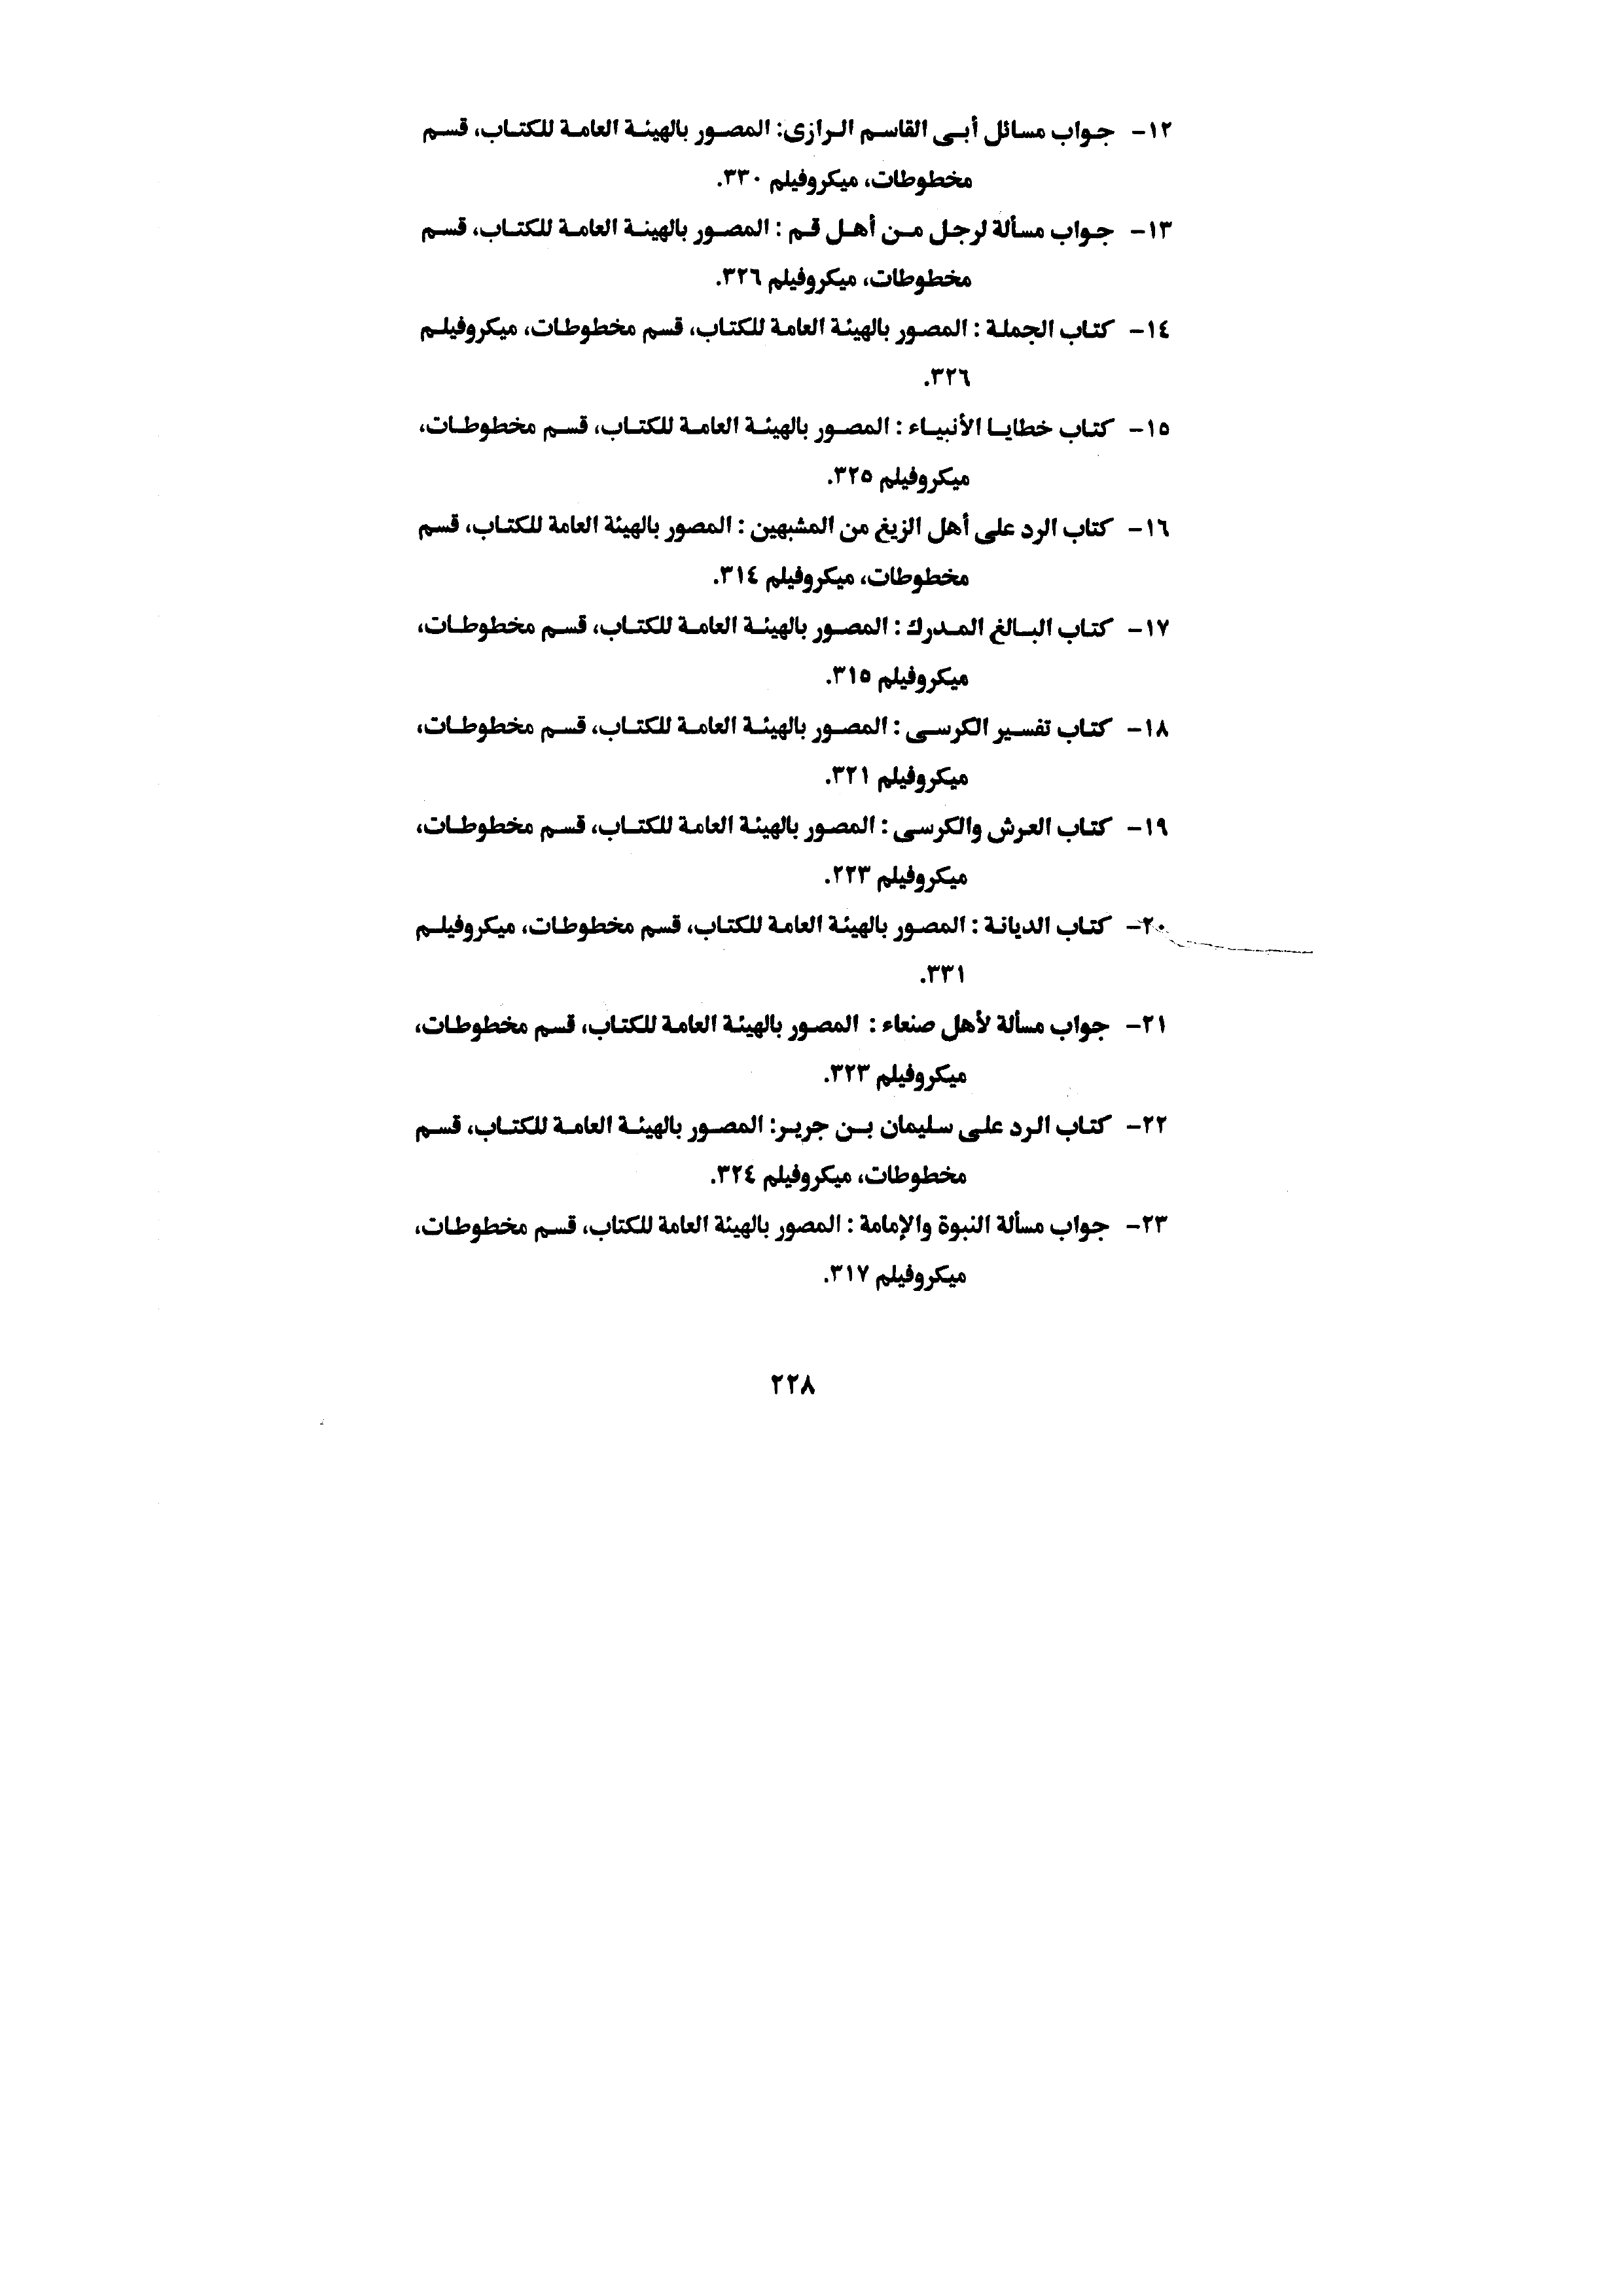 ١٢- جواب مسائل أبى القاسم الرازى: المصور بالهيئة العامة للكتاب، قسم
مخطوطات، ميكروفيلم ٣٣٠.
١٣- جواب مسألة لرجل من أهل قم : المصور بالهيئة العامة للكتاب، قسم
مخطوطات، ميكروفيلم ٣٢٦.
١٤- كتاب الجملة : المصور بالهيئة العامة للكتاب، قسم مخطوطات، ميكروفيلم
٣٢٦.
١٥- كتاب خطايا الأنبياء : المصور بالهيئة العامة للكتاب، قسم مخطوطات،
ميكروفيلم ٣٢٥.
١٦- كتاب الرد على أهل الزيغ من المشبهين : المصور بالهيئة العامة للكتاب، قسم
مخطوطات، ميكروفيلم ٣١٤.
١٧- كتاب البالغ المدرك : المصور بالهيئة العامة للكتاب، قسم مخطوطات،
ميكروفيلم ٣١٥.
١٨- كتاب تفسير الكرسى : المصور بالهيئة العامة للكتاب، قسم مخطوطات،
ميكروفيلم ٣٢١.
١٩- كتاب العرش والكرسى : المصور بالهيئة العامة للكتاب، قسم مخطوطات،
ميكروفيلم ٢٢٣.
٢٠- كتاب الديانة : المصور بالهيئة العامة للكتاب، قسم مخطوطات، ميكروفيلم
٣٣١.
٢١- جواب مسألة لأهل صنعاء : المصور بالهيئة العامة للكتاب، قسم مخطوطات،
ميكروفيلم ٣٢٣.
٢٢- كتاب الرد على سليمان بن جرير: المصور بالهيئة العامة للكتاب، قسم
مخطوطات، ميكروفيلم ٣٢٤.
٢٣- جواب مسألة النبوة والإمامة : المصور بالهيئة العامة للكتاب، قسم مخطوطات،
ميكروفيلم ٣١٧.
٢٢٨